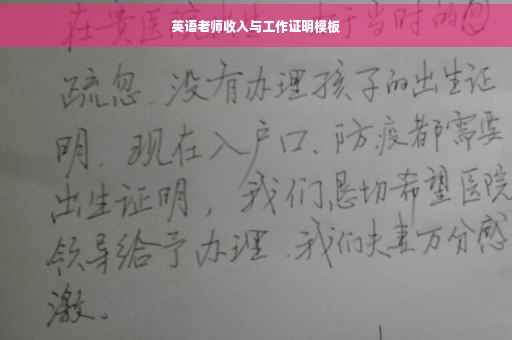 英语老师收入与工作证明模板
在贵医院出生，由于当时的
疏忽、没有办理孩子的出生证
明、现在入户口、防疫都需要
出生证明，我们恳切希望医院
领导给予办理、我们夫妻万分感
激。